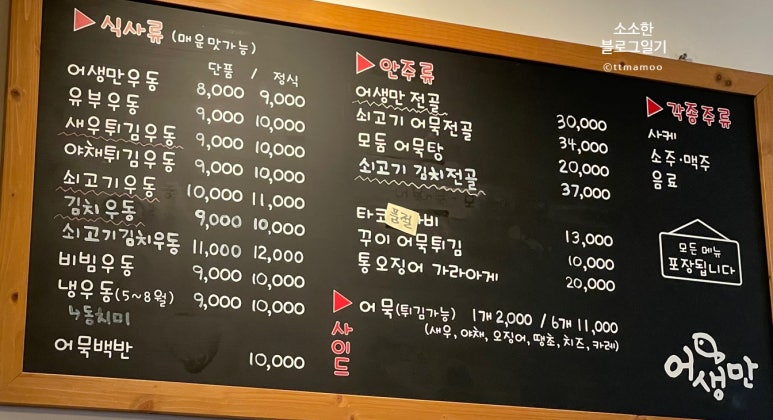 소소한
블로그일기
©ttmamoo
▶식사류 (매운맛가능)
단품 / 정식
어생만우동 8,000 9,000
유부우동 9,000 10,000
새우튀김우동 9,000 10,000
야채튀김우동 9,000 10,000
쇠고기우동 10,000 11,000
김치우동 9,000 10,000
쇠고기김치우동 11,000 12,000
비빔우동 9,000 10,000
냉우동(5~8월) 9,000 10,000
↳동치미
어묵백반 10,000
▶안주류
어생만 전골 30,000
쇠고기 어묵전골 34,000
모듬 어묵탕 20,000
쇠고기 김치전골 37,000
타코 비 13,000
꾸이 어묵튀김 10,000
통 오징어 가라아게 20,000
▶사이드
어묵(튀김가능) 1개 2,000 / 6개 11,000
(새우, 야채, 오징어, 땡초, 치즈, 카레)
▶각종주류
사케
소주·맥주
음료
모든 메뉴
포장됩니다
어생만